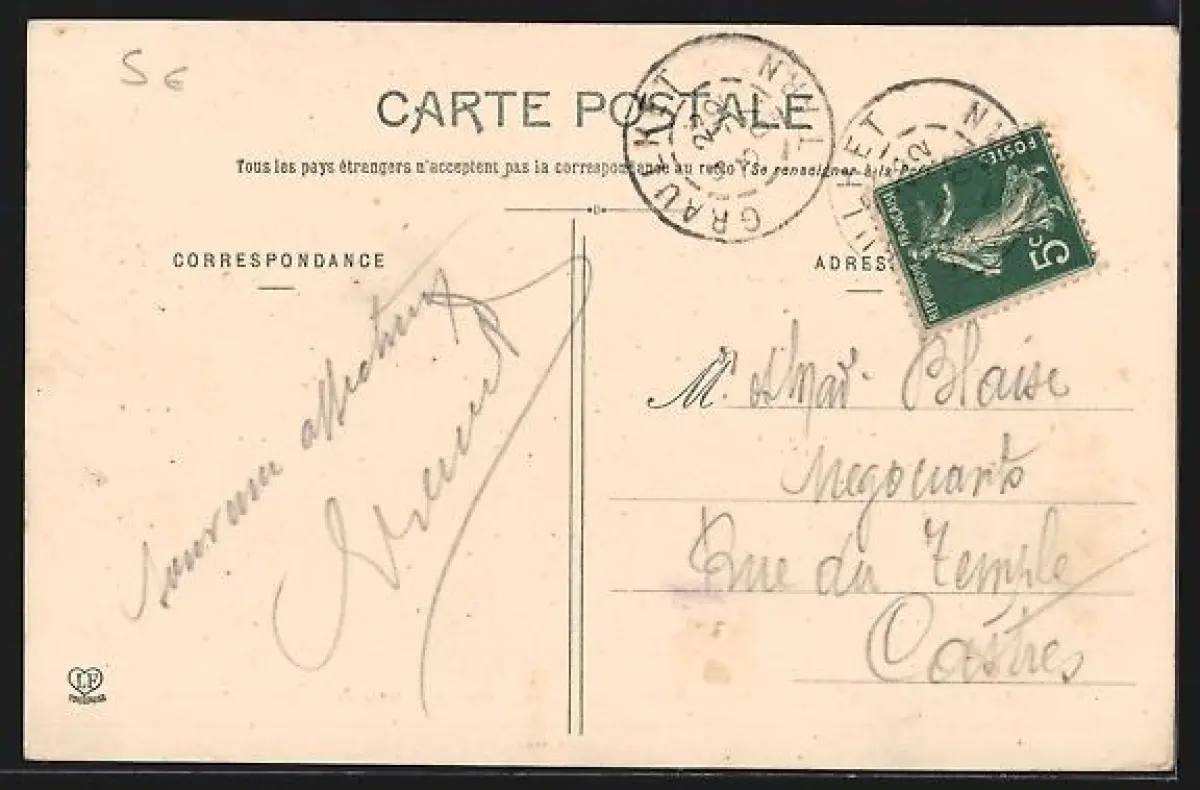 5 €
CARTE POSTALE
Tous les pays étrangers n'acceptent pas la correspondance au recto (Se renseigner à la
CORRESPONDANCE
ADRES
GRAULHET TARN
22
GRAULHET TARN
22
POSTES
5c
REPUBLIQUE FRANÇAISE
Souvenir affectueux
M. Blaise
Negociants
Rue du Temple
Castres
LF
TOULOUSE